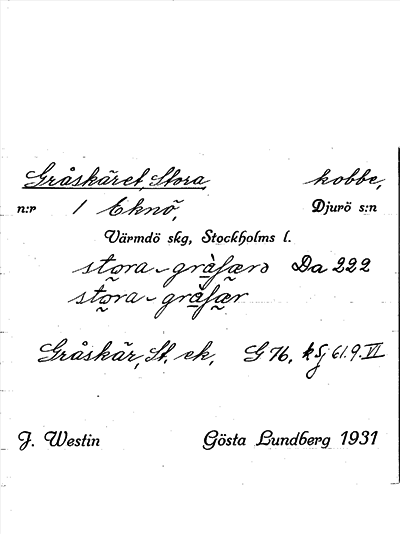 Gråskäret, Stora, kobbe,
n:r 1 Eknö, Djurö s:n
Värmdö skg, Stockholms l.
stora-gràſærə Da 222
stora-gràſær
Gråskär, St. ek, G 76, k Sj 61.9.VI
J. Westin Gösta Lundberg 1931